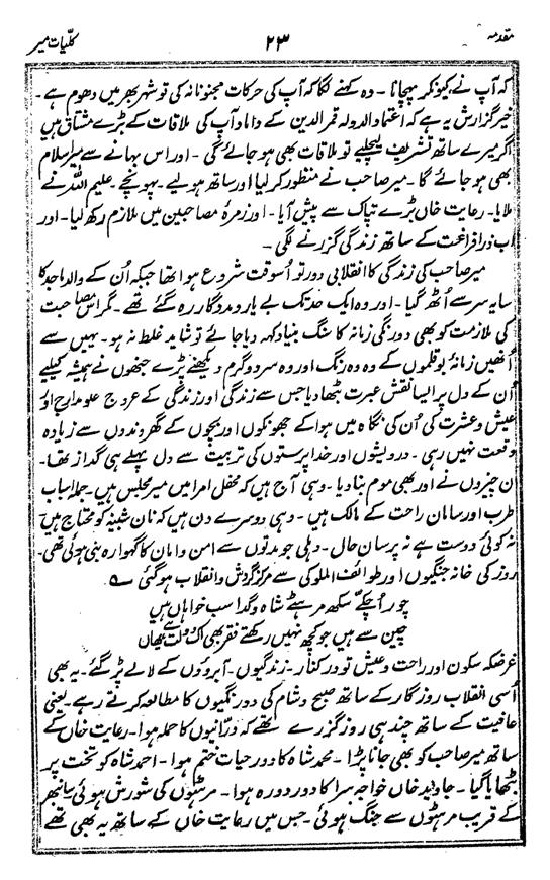 مقدمہ ۲۳ کلیات میر
کہ آپ نے کیونکر پہچانا ۔ وہ کہنے لگا کہ آپ کی حرکات مجنونانہ کی تو شہر بھر میں دھوم ہے ۔
خیر گزارش یہ ہے کہ اعتماد الدولہ قمر الدین کے داماد آپ کی ملاقات کے بڑے مشتاق ہیں
اگر میرے ساتھ تشریف لیچلیے تو ملاقات بھی ہو جائے گی ۔ اور اس بہانے سے میرا سلام
بھی ہو جائے گا ۔ میر صاحب نے منظور کر لیا اور ساتھ ہو لیے ۔ پہونچے ۔ علیم اللہ نے
ملایا ۔ رعایت خاں بڑے تپاک سے پیش آیا ۔ اور زمرۂ مصاحبین میں ملازم رکھ لیا ۔ اور
اب ذرا فراغت کے ساتھ زندگی گزرنے لگی ۔
میر صاحب کی زندگی کا انقلابی دور تو اُسوقت شروع ہوا تھا جبکہ اُن کے والد ماجد کا
سایہ سر سے اُٹھ گیا ۔ اور وہ ایک حد تک بے یار و مددگار رہ گئے تھے ۔ مگر اس مصاحبت
کی ملازمت کو بھی دورنگی زمانہ کا سنگ بنیاد کہہ دیا جائے تو شاید غلط نہ ہو ۔ یہیں سے
اُنھیں زمانۂ بوقلموں کے وہ وہ رنگ اور وہ سرد و گرم دیکھنے پڑے جنھوں نے ہمیشہ کیلیے
اُن کے دل پر ایسا نقش عبرت بٹھا دیا جس سے زندگی اور زندگی کے عروج علو مدارج اور
عیش و عشرت کی اُن کی نگاہ میں ہوا کے جھونکوں اور بچوں کے گھروندوں سے زیادہ
وقعت نہیں رہی ۔ درویشوں اور خدا پرستوں کی تربیت سے دل پہلے ہی گداز تھا ۔
ان چیزوں نے اور بھی موم بنا دیا ۔ وہی آج ہیں کہ محفل امرا میں میر مجلس ہیں ۔ جملہ اسباب
طرب اور سامان راحت کے مالک ہیں ۔ وہی دوسرے دن ہیں کہ نان شبینہ کو محتاج ہیں
نہ کوئی دوست ہے نہ پرسان حال ۔ دہلی جو مدتوں سے امن و امان کا گہوارہ بنی ہوئی تھی ۔
روز کی خانہ جنگیوں اور طوائف الملوکی سے مرکز گردش و انقلاب ہو گئی ؎
چور اُچکے سکھ مرہٹے شاہ و گدا سب خواہاں ہیں
چین سے ہیں جو کچھ نہیں رکھتے فقر بھی اک دولت ہے یھاں
غرضکہ سکون اور راحت و عیش تو در کنار ۔ زندگیوں ۔ آبروؤں کے لالے پڑ گئے ۔ یہ بھی
اُسی انقلاب روزگار کے ساتھ صبح و شام کی دورنگیوں کا مطالعہ کرتے رہے ۔ یعنی
عافیت کے ساتھ چند ہی روز گزرے تھے کہ درّانیوں کا حملہ ہوا ۔ رعایت خاں کے
ساتھ میر صاحب کو بھی جانا پڑا ۔ محمد شاہ کا دور حیات ختم ہوا ۔ احمد شاہ کو تخت پر
بٹھایا گیا ۔ جاوید خاں خواجہ سرا کا دور دورہ ہوا ۔ مرہٹوں کی شورش ہوئی سانبھر
کے قریب مرہٹوں سے جنگ ہوئی ۔ جس میں رعایت خاں کے ساتھ یہ بھی تھے